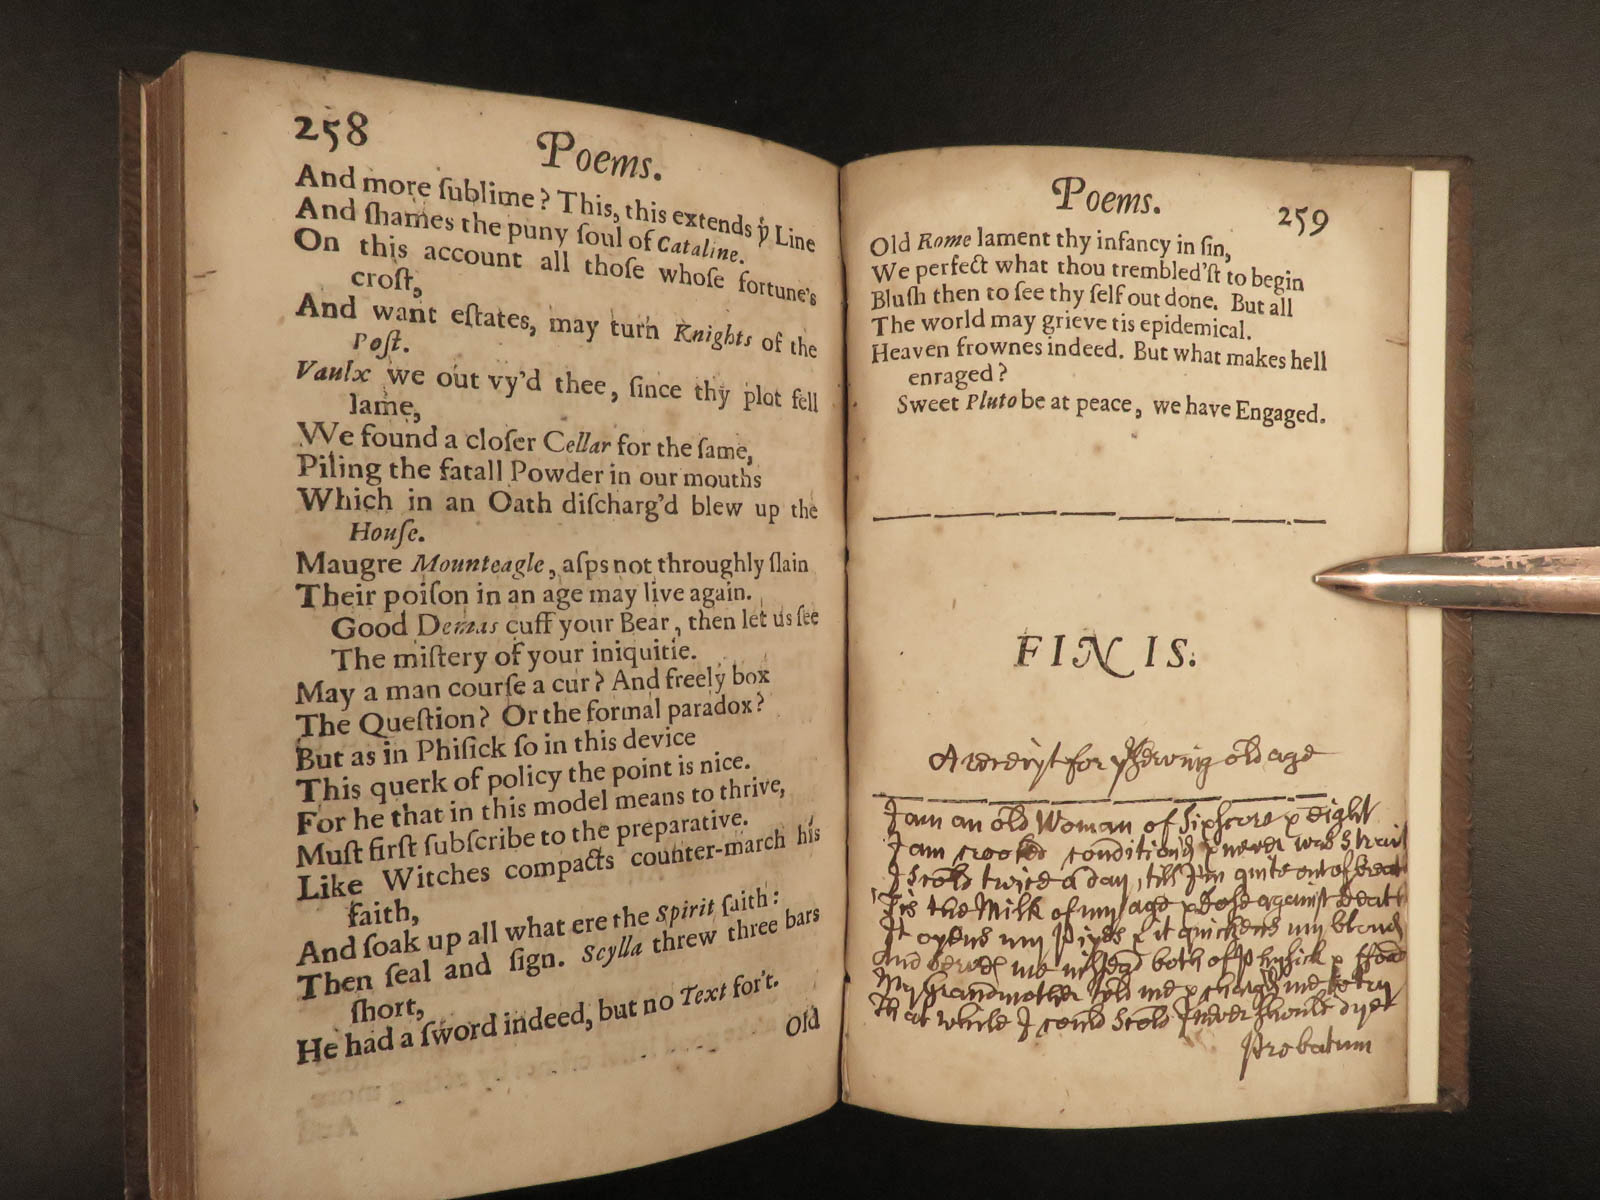 258
Poems.
And more ſublime? This, this extends yͤ Line
And ſhames the puny ſoul of Cataline.
On this account all thoſe whoſe fortune's
croſt,
And want eſtates, may turn Knights of the
Poſt.
Vaulx we out vy'd thee, ſince thy plot fell
lame,
We found a cloſer Cellar for the ſame,
Piling the fatall Powder in our mouths
Which in an Oath diſcharg'd blew up the
Houſe.
Maugre Mounteagle, aſps not throughly ſlain
Their poiſon in an age may live again.
Good Demas cuff your Bear, then let us ſee
The miſtery of your iniquitie.
May a man courſe a cur? And freely box
The Queſtion? Or the formal paradox?
But as in Phiſick ſo in this device
This querk of policy the point is nice.
For he that in this model means to thrive,
Muſt firſt ſubſcribe to the preparative.
Like Witches compacts counter-march his
faith,
And ſoak up all what ere the Spirit ſaith:
Then ſeal and ſign. Scylla threw three bars
ſhort,
He had a ſword indeed, but no Text for't.
Old
Poems.
259
Old Rome lament thy infancy in ſin,
We perfect what thou trembled'ſt to begin
Bluſh then to ſee thy ſelf out done. But all
The world may grieve tis epidemical.
Heaven frownes indeed. But what makes hell
enraged?
Sweet Pluto be at peace, we have Engaged.
FINIS.
A receipt for pserving old age
I am an old Woman of Sixscore & eight
I am crooked conditiond & never was strait
I scold twice a day, till I'm quite out of breath
Tis the Milk of my age & Dose against Death
It opens my Pipes & it quickens my blood
And serves me instead both of Physick & ffood
My Grandmother told me & chargd me to try
That while I could Scold I never should dye
Probatum